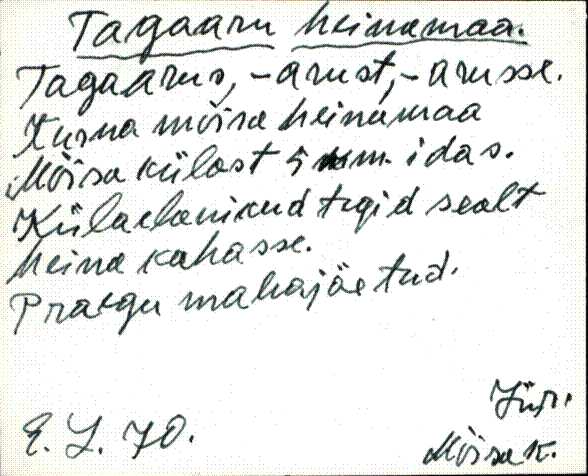 Tagaaru heinamaa.
Tagaarus, -arust, -arusse.
Kurna mõisa heinamaa
Mõisakülast 5 km. idas.
Külaelanikud tegid sealt
heina kahasse.
Praegu mahajäetud.
Jür.
E. J. 70.
Mõisa k.